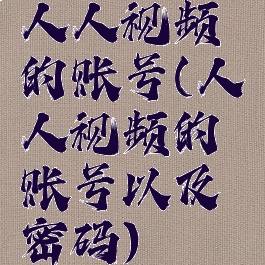 人人视频
的账号(人
人视频的
账号以及
密码)